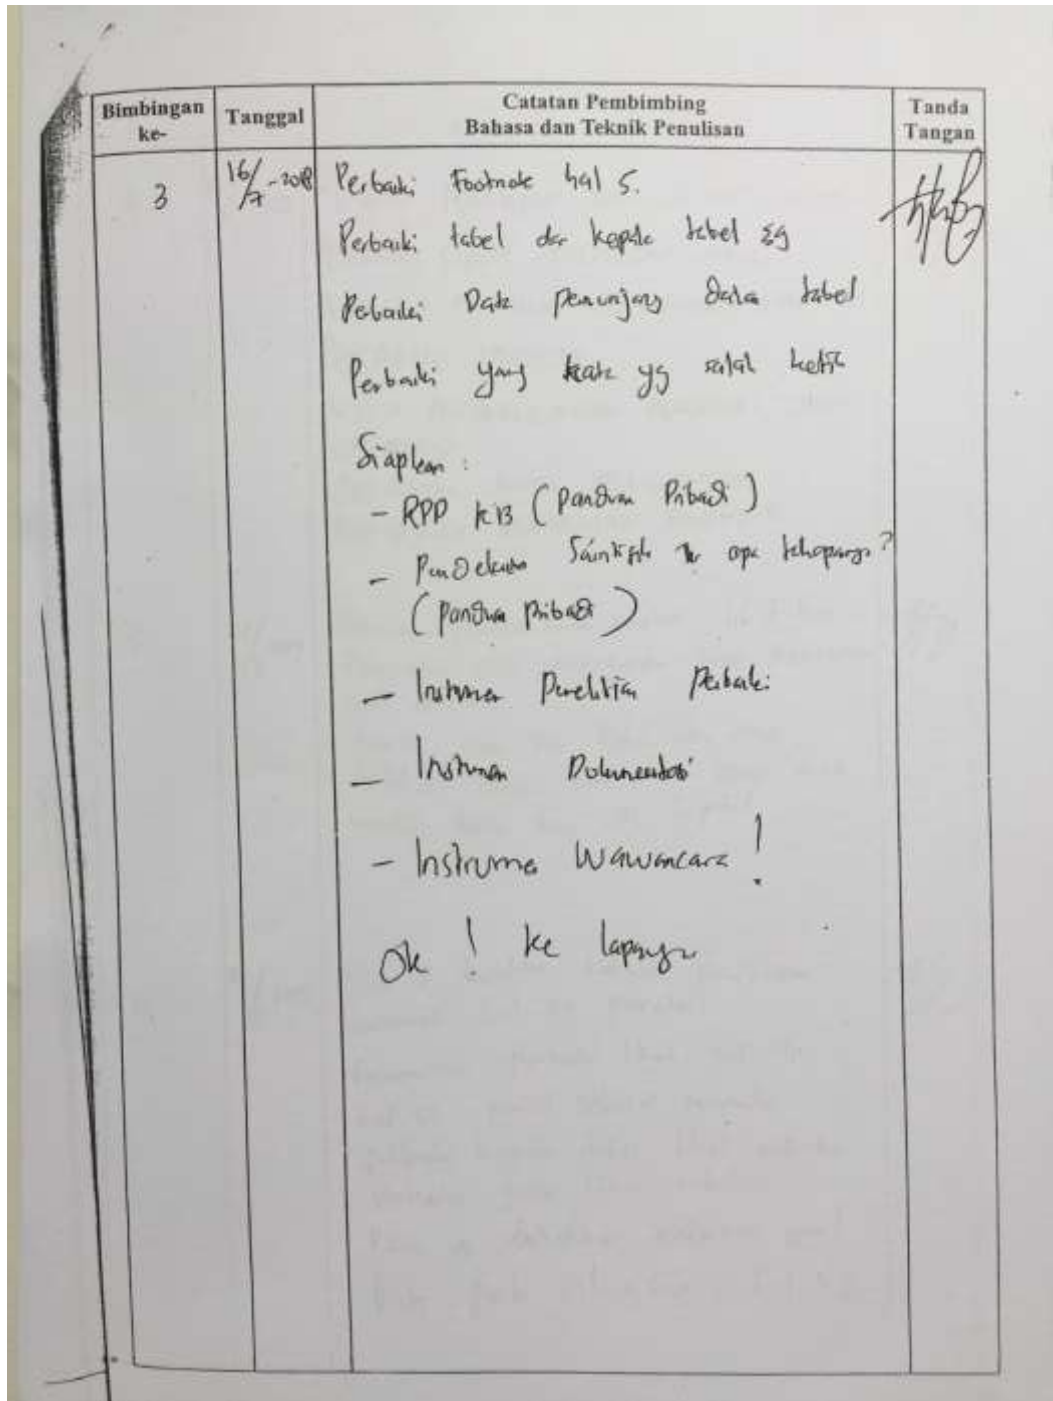 Bimbingan ke-
Tanggal
Catatan Pembimbing
Bahasa dan Teknik Penulisan
Tanda Tangan
3
16/7-2018
Perbaiki Footnote hal 5.
Perbaiki tabel dan kepala tabel
Perbaiki Data penunjang dalam tabel
Perbaiki yang kata yg salah ketik
Siapkan :
- RPP K13 (Panduan Pribadi)
- Pendekatan Saintifik apa tahapannya?
(Panduan Pribadi)
- Instrumen Penelitian Perbaiki
- Instrumen Dokumentasi
- Instrumen Wawancara !
Ok ! ke lapangan